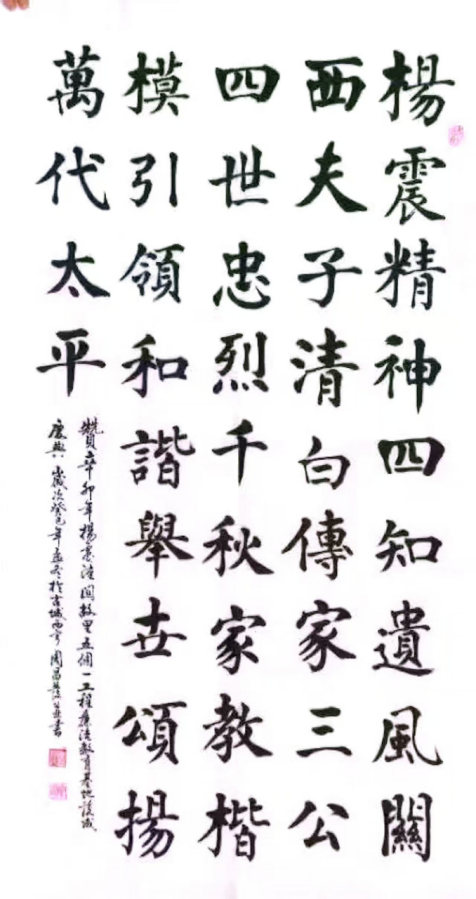 楊震精神四知遺風關
西夫子清白傳家三公
四世忠烈千秋家教楷
模引領和諧舉世頌揚
萬代太平
贊辛卯年楊震潼關故里五個一工程廉潔教育基地落成
慶典歲次癸巳年孟冬於古城西 周昌 並書